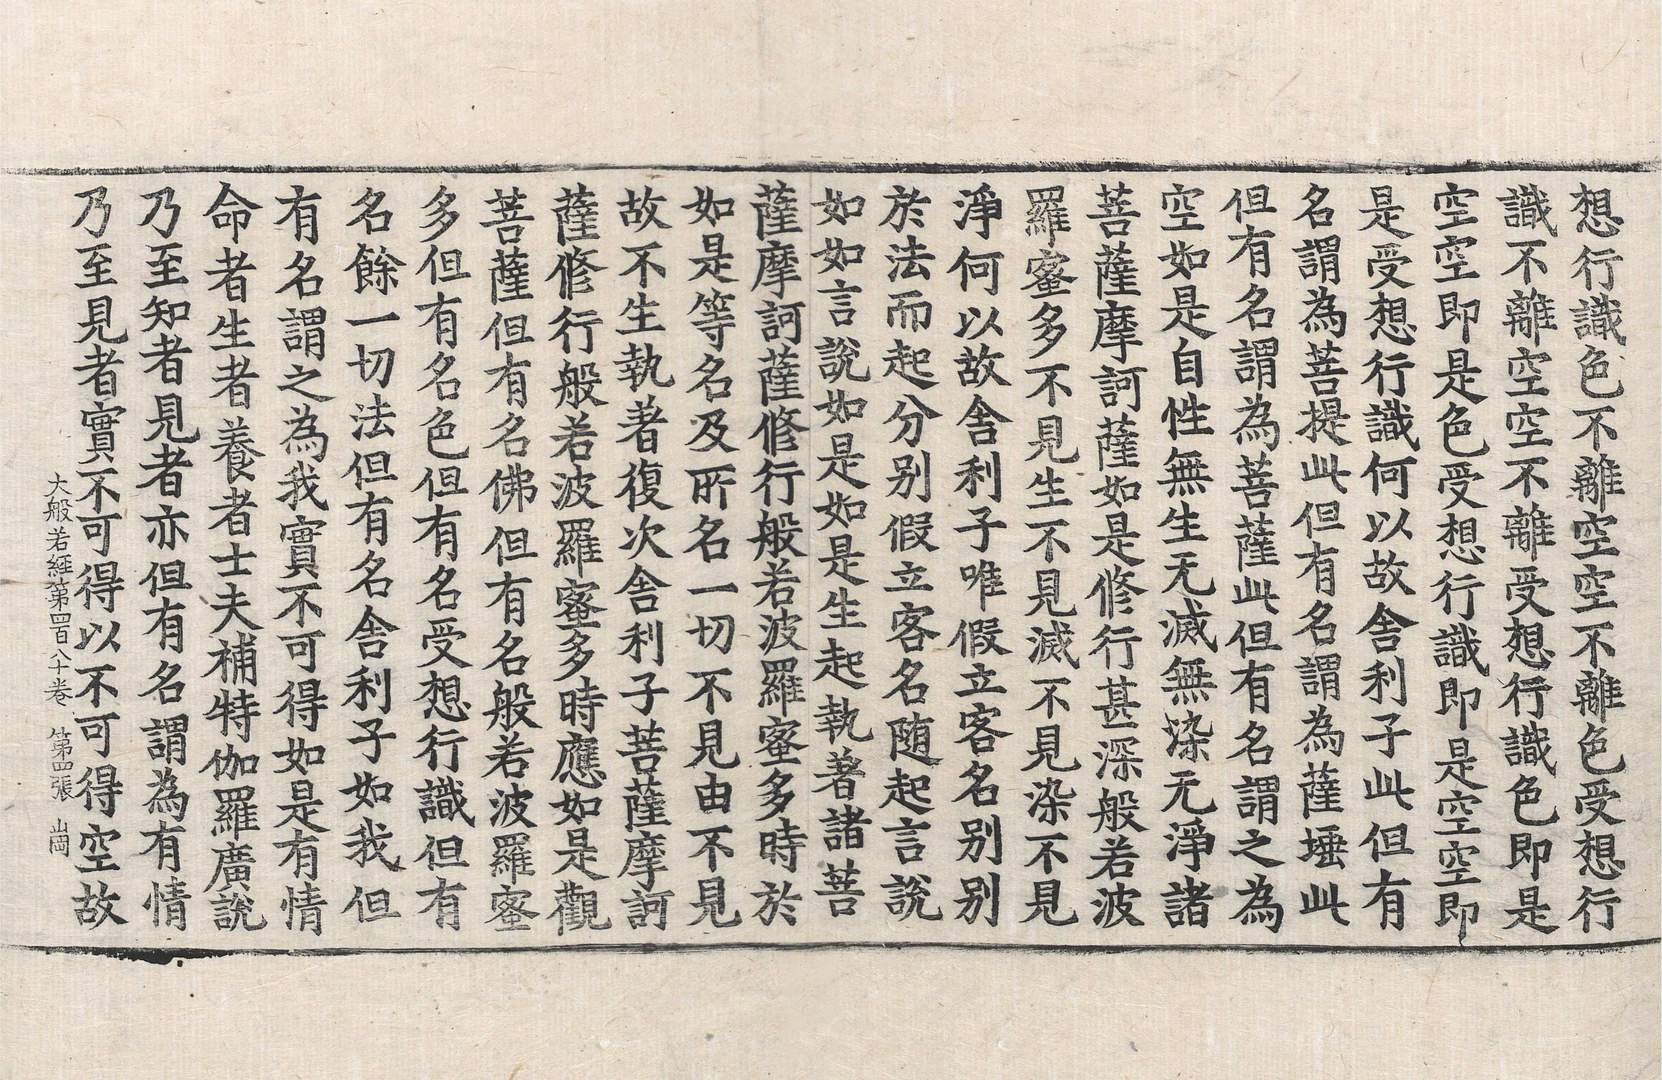 想行識色不離空空不離色受想行
識不離空空不離受想行識色即是
空空即是色受想行識即是空空即
是受想行識何以故舍利子此但有
名謂為菩提此但有名謂為薩埵此
但有名謂為菩薩此但有名謂之為
空如是自性無生无滅無染无淨諸
菩薩摩訶薩如是修行甚深般若波
羅蜜多不見生不見滅不見染不見
淨何以故舍利子唯假立客名別別
於法而起分別假立客名随起言說
如如言說如是如是生起執著諸菩
薩摩訶薩修行般若波羅蜜多時於
如是等名及所名一切不見由不見
故不生執著復次舍利子菩薩摩訶
薩修行般若波羅蜜多時應如是觀
菩薩但有名佛但有名般若波羅蜜
多但有名色但有名受想行識但有
名餘一切法但有名舍利子如我但
有名謂之為我實不可得如是有情
命者生者養者士夫補特伽羅廣說
乃至知者見者亦但有名謂為有情
乃至見者實不可得以不可得空故
大般若經第四百八十卷 第四張 崗